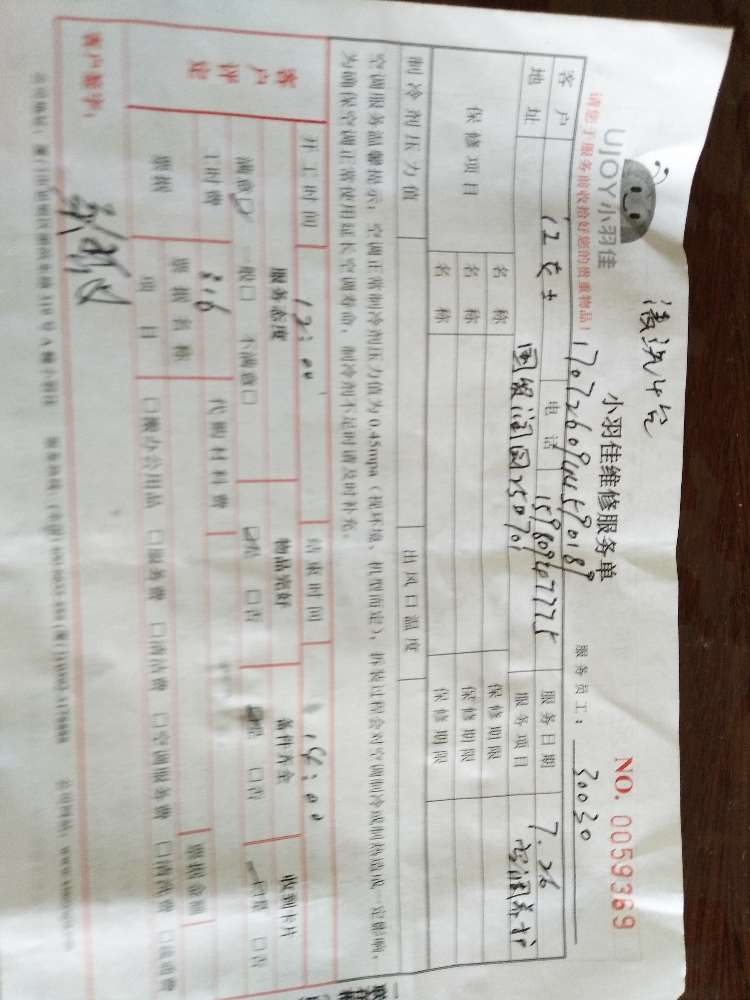 UJOY小羽佳
小羽佳维修服务单
NO. 0059369
清洗4台
请您于服务前收拾好您的贵重物品!
服务员工: 30030
客户 江女士 电话 15980907775 服务日期 7.26
地址 国贸润园250701 服务项目 空调养护
保修项目 名称 保修期限
名称 保修期限
名称 保修期限
制冷剂压力值 出风口温度
空调服务温馨提示: 空调正常制冷剂压力值为0.45mpa (视环境、机型而定), 拆装过程会对空调制冷或制热造成一定影响,
为确保空调正常使用延长空调寿命, 制冷剂不足时请及时补充。
开工时间 12:00 结束时间 14:00
客户评定 服务态度 物品完好 备件齐全 收到卡片
满意☑ 一般□ 不满意□ ☑是 □否 ☑是 □否 ☑是 □否
工时费 316 代购材料费
票据 票据名称 票据金额
项目 □办公用品 □服务费 □清洁费 □空调服务费 □清洗费
客户签字: